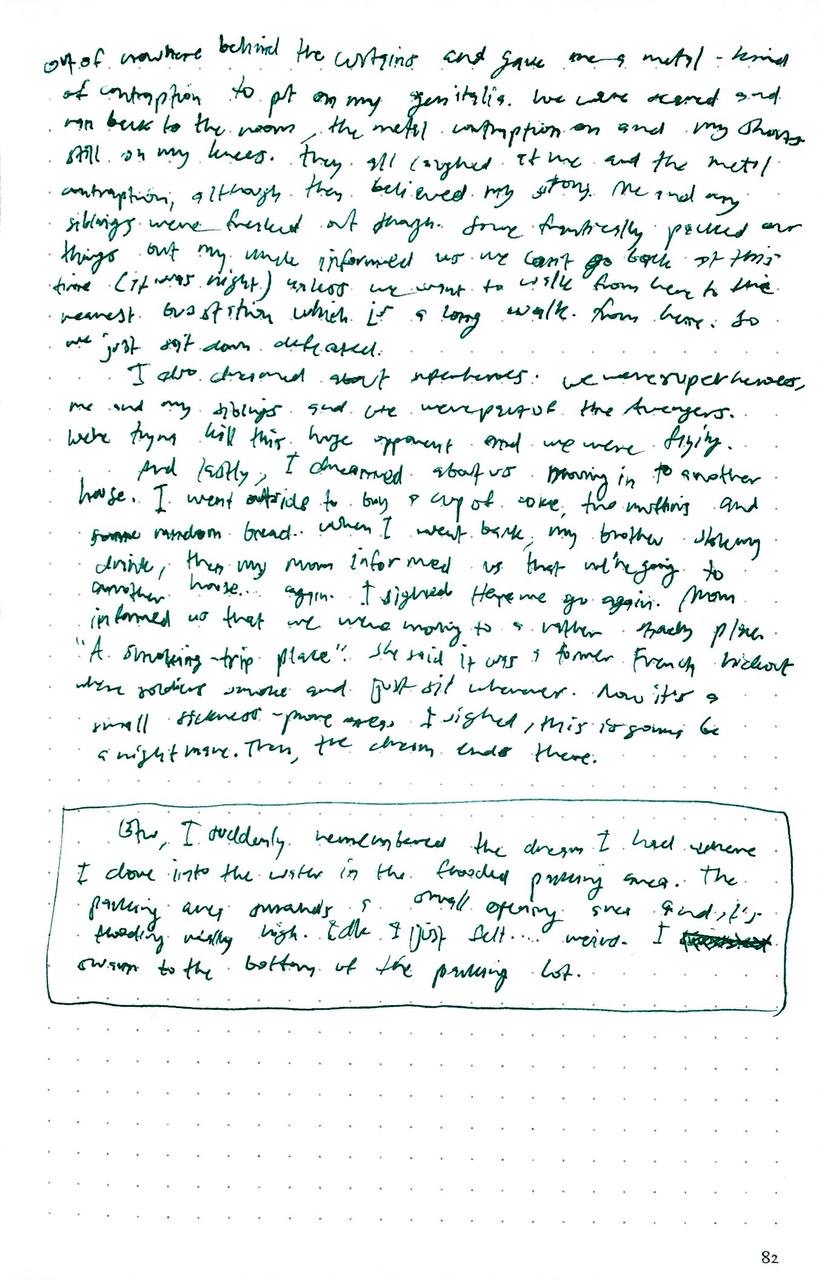 out of nowhere behind the curtains and gave me a metal-kind
of contraption to put on my genitalia. We were scared and
ran back to the room, the metal contraption on and my shorts
still on my knees. They all laughed at me and the metal
contraption, although they believed my story. Me and my
siblings were freaked out though. Some frantically packed our
things but my uncle informed us we can't go back at this
time (it was night) unless we want to walk from here to the
nearest bus station which is a long walk from here. So
we just sit down defeated.
I also dreamed about superheroes. We were superheroes,
me and my siblings and we were part of the Avengers.
We're trying kill this huge opponent and we were flying.
And lastly, I dreamed about us moving in to another
house. I went outside to buy a cup of coke, two muffins and
some random bread. When I went back, my brother stole my
drink, then my mom informed us that we're going to
another house... again. I sighed. Here we go again. Mom
informed us that we were moving to a rather shady place.
"A smoking-trip place". She said it was a former French hideout
where soldiers smoke and just sit wherever. Now it's a
small sickness-prone area. I sighed, this is gonna be
a nightmare. Then, the dream ends there.
Btw, I suddenly remembered the dream I had where
I dove into the water in the flooded parking area. The
parking area surrounds a small opening area and, it's
flooding really high. Idk I just felt.... weird. I
swam to the bottom of the parking lot.
82